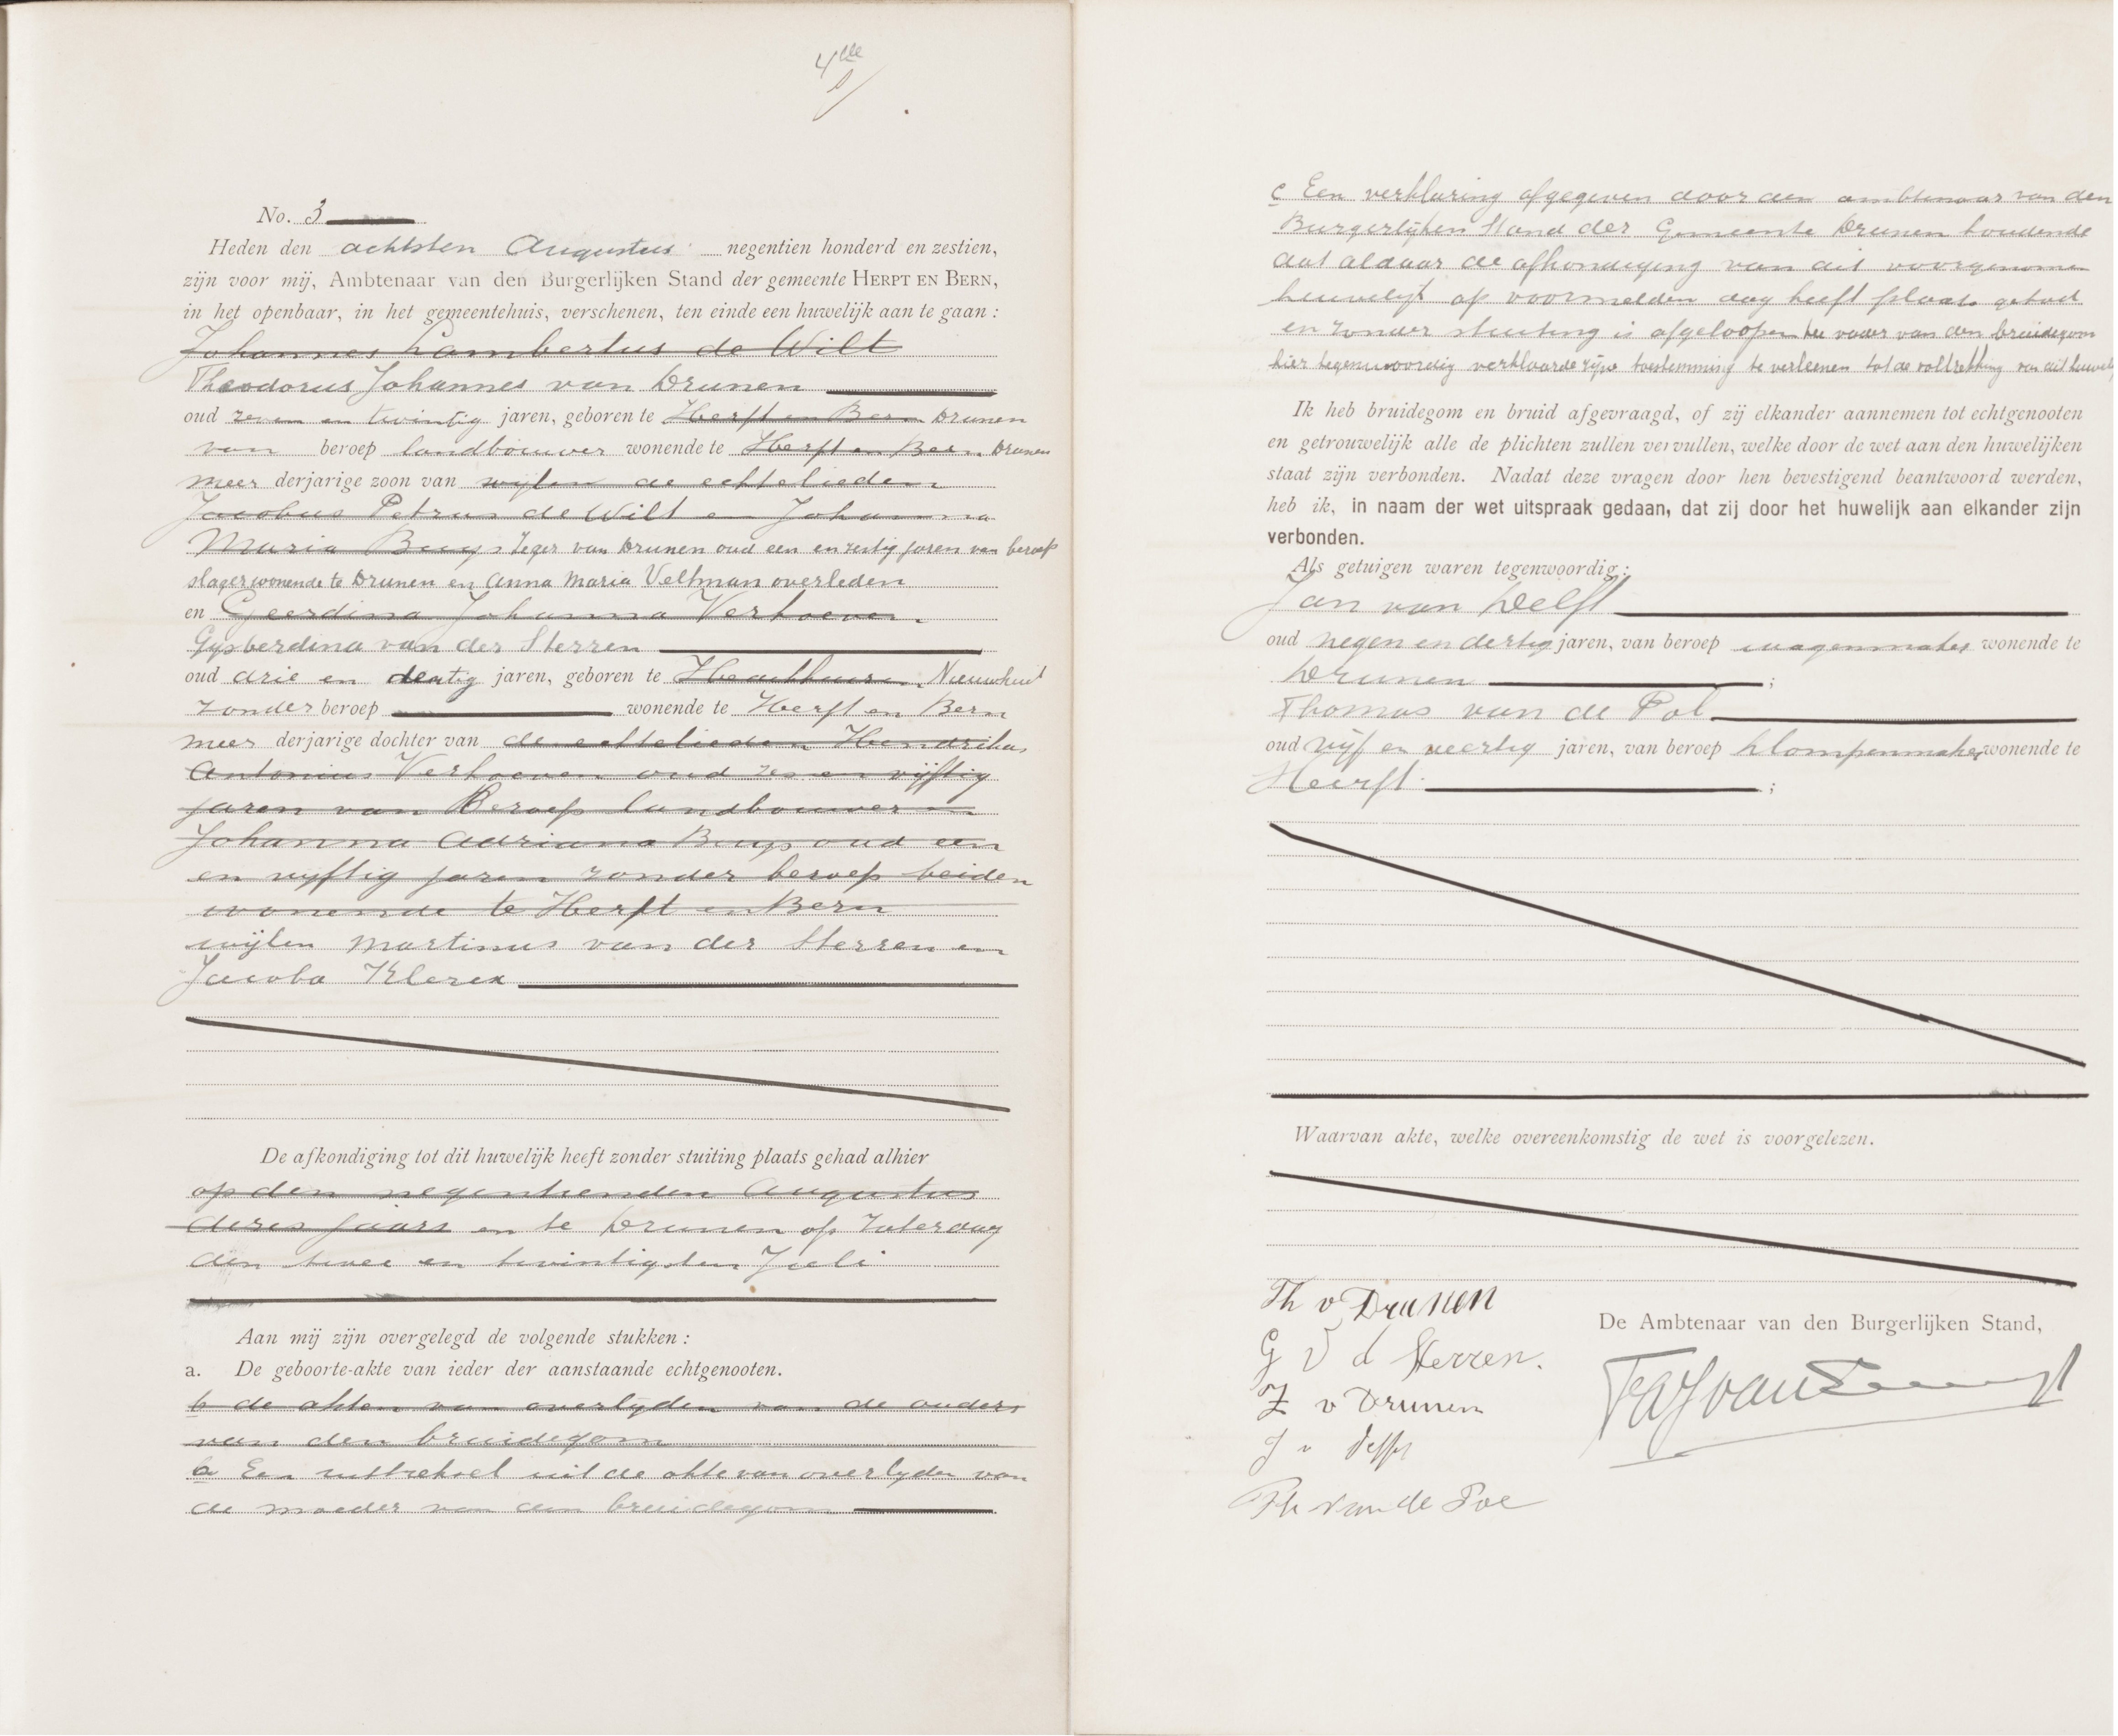 4de
No. 3
Heden den achtsten Augustus negentien honderd en zestien,
zijn voor mij, Ambtenaar van den Burgerlijken Stand der gemeente HERPT EN BERN,
in het openbaar, in het gemeentehuis, verschenen, ten einde een huwelijk aan te gaan :
Johannes Lambertus de Wilt
Theodorus Johannes van Drunen
oud zeven en twintig jaren, geboren te Herpt en Bern Drunen
van beroep landbouwer wonende te Herpt en Bern Drunen
meer derjarige zoon van wijlen de echtelieden
Jacobus Petrus de Wilt en Johanna
Maria Buys Zeger van Drunen oud een en zestig jaren van beroep
slager wonende te Drunen en Anna Maria Veltman overleden
en Geerdina Johanna Verhoeven
Gysberdina van der Sterren
oud drie en dertig jaren, geboren te Nieuwkuik
zonder beroep wonende te Herpt en Bern
meer derjarige dochter van de echtelieden Hendrikus
Antonius Verhoeven oud zes en vijftig
jaren van Beroep landbouwer en
Johanna Adriana Buys oud een
en vyftig jaren zonder beroep beiden
wonende te Herpt en Bern
wijlen Martinus van der Sterren en
Jacoba Klerex
De afkondiging tot dit huwelijk heeft zonder stuiting plaats gehad alhier
op den negentienden Augustus
dezes jaars en te Drunen op Zaterdag
den twee en twintigsten Juli
Aan mij zijn overgelegd de volgende stukken :
a. De geboorte-akte van ieder der aanstaande echtgenooten.
b de akten van overlyden van de ouders
van den bruidegom
b Een uittreksel uit de akte van overlyden van
de moeder van den bruidegom
c Een verklaring afgegeven door den ambtenaar van den
Burgerlijken Stand der Gemeente Drunen houdende
dat aldaar de afkondiging van dit voorgenomen
huwelijk op voormelden dag heeft plaats gehad
en zonder stuiting is afgeloopen De vader van den bruidegom
hier tegenwoordig verklaarde zijne toestemming te verleenen tot de voltrekking van dit huwelijk
Ik heb bruidegom en bruid afgevraagd, of zij elkander aannemen tot echtgenooten
en getrouwelijk alle de plichten zullen vervullen, welke door de wet aan den huwelijken
staat zijn verbonden. Nadat deze vragen door hen bevestigend beantwoord werden,
heb ik, in naam der wet uitspraak gedaan, dat zij door het huwelijk aan elkander zijn
verbonden.
Als getuigen waren tegenwoordig :
Jan van Delft
oud negen en dertig jaren, van beroep wagenmaker wonende te
Drunen ;
Thomas van de Pol
oud vijf en veertig jaren, van beroep klompenmaker wonende te
Herpt ;
Waarvan akte, welke overeenkomstig de wet is voorgelezen.
Th v Drunen
De Ambtenaar van den Burgerlijken Stand,
G V d Sterren.
Z v Drunen
J v Delft
Th van de Pol